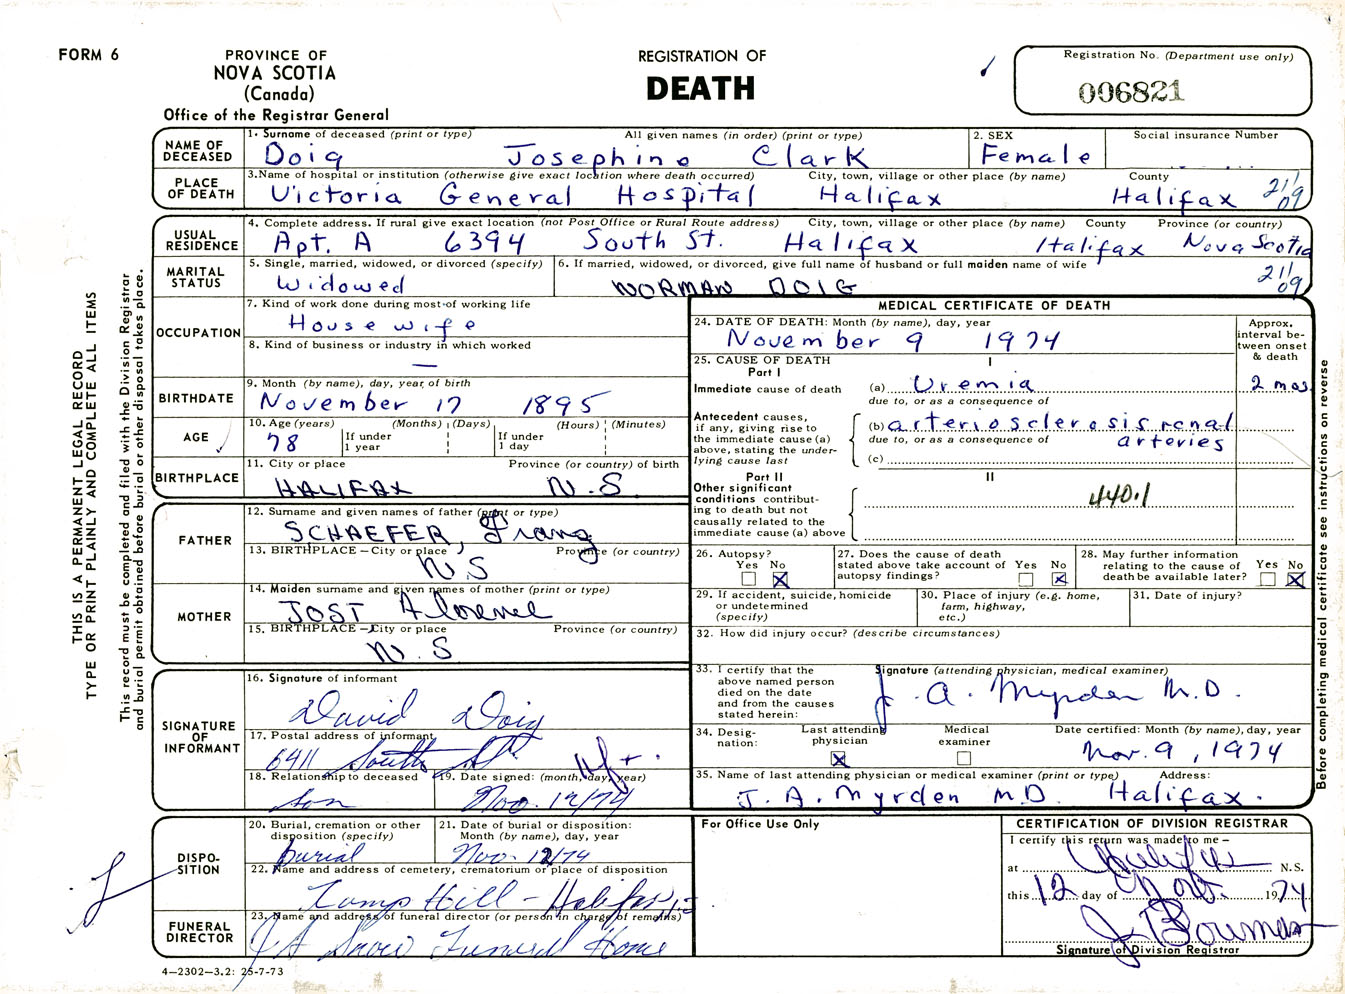 FORM 6
PROVINCE OF
NOVA SCOTIA
(Canada)
Office of the Registrar General
REGISTRATION OF
DEATH
Registration No. (Department use only)
006821
THIS IS A PERMANENT LEGAL RECORD
TYPE OR PRINT PLAINLY AND COMPLETE ALL ITEMS
This record must be completed and filed with the Division Registrar
and burial permit obtained before burial or other disposal takes place.
NAME OF DECEASED
1. Surname of deceased (print or type) All given names (in order) (print or type)
Doig Josephine Clark
2. SEX
Female
Social insurance Number
PLACE OF DEATH
3. Name of hospital or institution (otherwise give exact location where death occurred) City, town, village or other place (by name) County
Victoria General Hospital Halifax Halifax 211/09
USUAL RESIDENCE
4. Complete address. If rural give exact location (not Post Office or Rural Route address) City, town, village or other place (by name) County Province (or country)
Apt. A 6394 South St. Halifax Halifax Nova Scotia
211/09
MARITAL STATUS
5. Single, married, widowed, or divorced (specify)
Widowed
6. If married, widowed, or divorced, give full name of husband or full maiden name of wife
NORMAN DOIG
OCCUPATION
7. Kind of work done during most of working life
Housewife
8. Kind of business or industry in which worked
—
BIRTHDATE
9. Month (by name), day, year of birth
November 17 1895
AGE
10. Age (years) (Months) (Days) (Hours) (Minutes)
78 If under 1 year If under 1 day
BIRTHPLACE
11. City or place Province (or country) of birth
HALIFAX N.S
FATHER
12. Surname and given names of father (print or type)
SCHAEFER, Franz
13. BIRTHPLACE – City or place Province (or country)
N.S
MOTHER
14. Maiden surname and given names of mother (print or type)
JOST Florence
15. BIRTHPLACE – City or place Province (or country)
N.S
SIGNATURE OF INFORMANT
16. Signature of informant
David Doig
17. Postal address of informant
6411 South St. Hfx.
18. Relationship to deceased
son
19. Date signed: (month, day, year)
Nov. 12/74
DISPO-
SITION
20. Burial, cremation or other disposition (specify)
burial
21. Date of burial or disposition: Month (by name), day, year
Nov. 12/74
22. Name and address of cemetery, crematorium or place of disposition
Camp Hill – Halifax
FUNERAL DIRECTOR
23. Name and address of funeral director (or person in charge of remains)
J A Snow Funeral Home
4–2302–3.2: 25-7-73
MEDICAL CERTIFICATE OF DEATH
24. DATE OF DEATH: Month (by name), day, year
November 9 1974
Approx. interval between onset & death
25. CAUSE OF DEATH
Part I I
Immediate cause of death (a) Uremia 2 mos
due to, or as a consequence of
Antecedent causes, if any, giving rise to the immediate cause (a) above, stating the underlying cause last
(b) arteriosclerosis renal
due to, or as a consequence of arteries
(c)
Part II II
Other significant conditions contributing to death but not causally related to the immediate cause (a) above
440.1
26. Autopsy? Yes No
27. Does the cause of death stated above take account of autopsy findings? Yes No
28. May further information relating to the cause of death be available later? Yes No
29. If accident, suicide, homicide or undetermined (specify)
30. Place of injury (e.g. home, farm, highway, etc.)
31. Date of injury?
32. How did injury occur? (describe circumstances)
33. I certify that the above named person died on the date and from the causes stated herein:
Signature (attending physician, medical examiner)
J. A. Myrden M.D.
34. Designation: Last attending physician Medical examiner
Date certified: Month (by name), day, year
Nov. 9, 1974
35. Name of last attending physician or medical examiner (print or type) Address:
J. A. Myrden M.D. Halifax.
For Office Use Only
CERTIFICATION OF DIVISION REGISTRAR
I certify this return was made to me –
at Halifax N.S.
this 12 day of Nov. 1974
Signature of Division Registrar
Before completing medical certificate see instructions on reverse